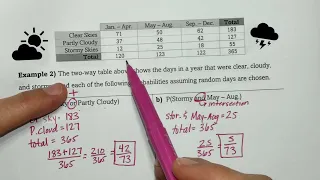 Jan. – Apr. May – Aug. Sep. – Dec. Total
Clear Skies 71 50 62 183
Partly Cloudy 37 48 42 127
Stormy Skies 12 25 18 55
Total 120 123 122 365
Example 2) The two-way table above shows the days in a year that were clear, cloudy,
and stormy. Find each of the following probabilities assuming random days are chosen.
or Partly Cloudy)
b) P(Stormy and May – Aug.)
intersection
sky = 183
P. Cloud = 127
total = 365
183+127/365 = 210/365 = 42/73
stor. & May-Aug = 25
total = 365
25/365 = 5/73